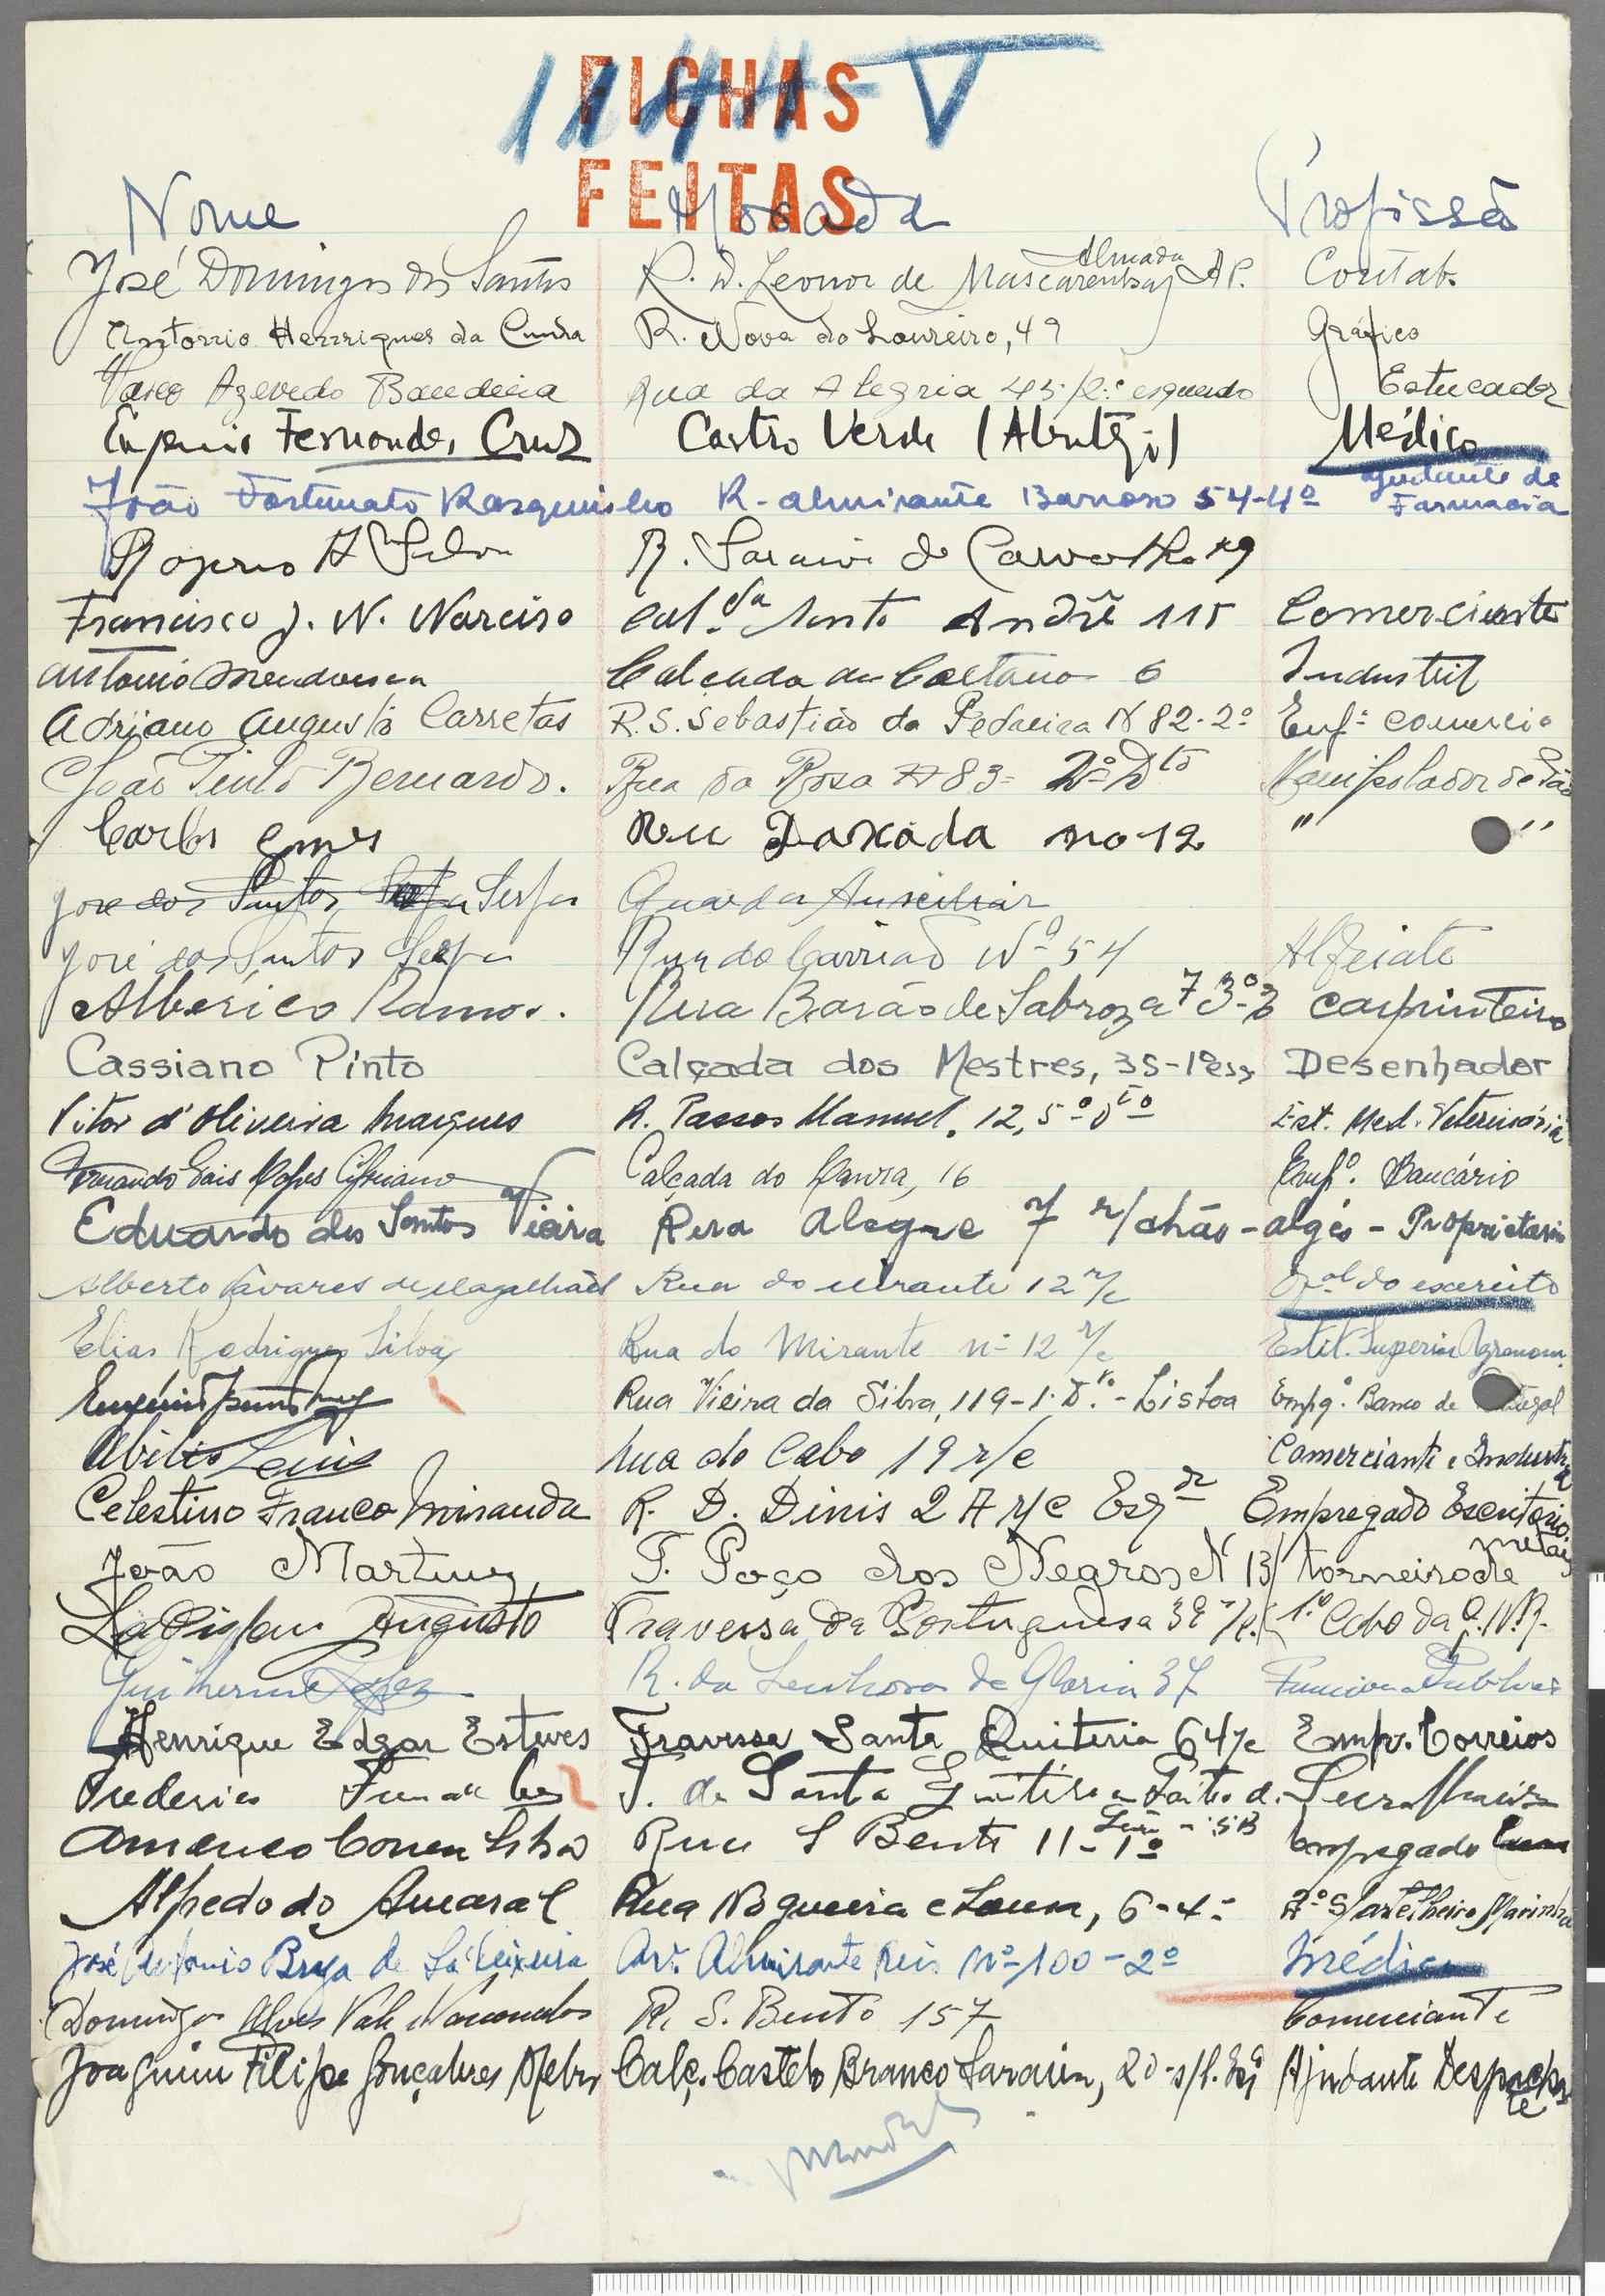 FICHAS
FEITAS
Nome Morada Profissão
José Domingos dos Santos R. D. Leonor de Mascarenhas Almada AP. Contab.
Antonio Henriques da Cunha R. Nova do Loureiro, 49 Gráfico
Vasco Azevedo Bandeira Rua da Alegria 45 esquerdo Estucador
Eugenio Fernandes Cruz Castro Verde (Alentejo) Médico
João Fortunato Rasquinho R. almirante Barroso 54-4º ajudante de Farmacia
Rogerio A Silva R. Saraiva de Carvalho
Francisco J. N. Narciso Calçda Santo André 115 Comerciante
Antonio Mendonsa Calçada do Caetano 6 Industril
Adriano Augusto Carretas R. S. Sebastião da Pedreira N 82-2º Empº comercio
João Pinto Bernardo. Rua da Rosa 83 = 2º Dto Manipolador de Pão
Carlos Rua Taxáda no 12 " "
Jose dos Santos Serpa Guarda Auxiliar
José dos Santos Serpa Rua do Carrião Nº 54 Alfeiate
Alberico Ramos. Rua Barão de Sabroza 7 3º carpinteiro
Cassiano Pinto Calçada dos Mestres, 35-1º esq Desenhador
Vitor d'Oliveira Marques R. Passos Manuel, 12, 5º Dto Est. Med. Veterinária
Fernando Lopes Cipriano Calçada do 16 Empº. Bancário
Eduardo dos Santos Vieira Rua Alegre 7 r/chão - algés - Proprietario
Alberto Tavares de Magalhães Rua do mirante 12 r/c Ofal do exercito
Elias Rodrigues Silva Rua do Mirante nº 12 r/c Estit. Superior Agronom.
Eugénio Rua Vieira da Silva, 119-1º Dto. - Lisboa Empgº. Banco de Portugal
Abilio Luis Rua do Cabo 19 r/c Comerciante e Industrial
Celestino Franco Miranda R. D. Dinis 2 A r/c Esq Empregado Escritorio.
João Martins T. Poço dos Negros Nº 13 torneiro de metais
Ladislau Augusto Travessa da Portuguesa 38 r/c. 1º Cabo da G.N.R.
Guilherme Lopes R. da Senhora da Gloria 37
Henrique Edgar Esteves Travessa Santa Quiteria 64 r/c Emp. Correios
Frederico T. de Santa
Americo Correia Silva Rua S Bento 11-1º Empregado
Alfredo do Amaral Rua Nogueira e Sousa, 6-4º 2º Artelheiro Marinha
José Antonio Braga de Sá Teixeira Av. Almirante Reis nº 100-2º Médico
Domingos Alves Vale Vasconcelos R. S. Bento 157 Comerciante
Joaquim Filipe Gonçalves Calç. Castelo Branco Saraiva, 20 Ajudante Despachante